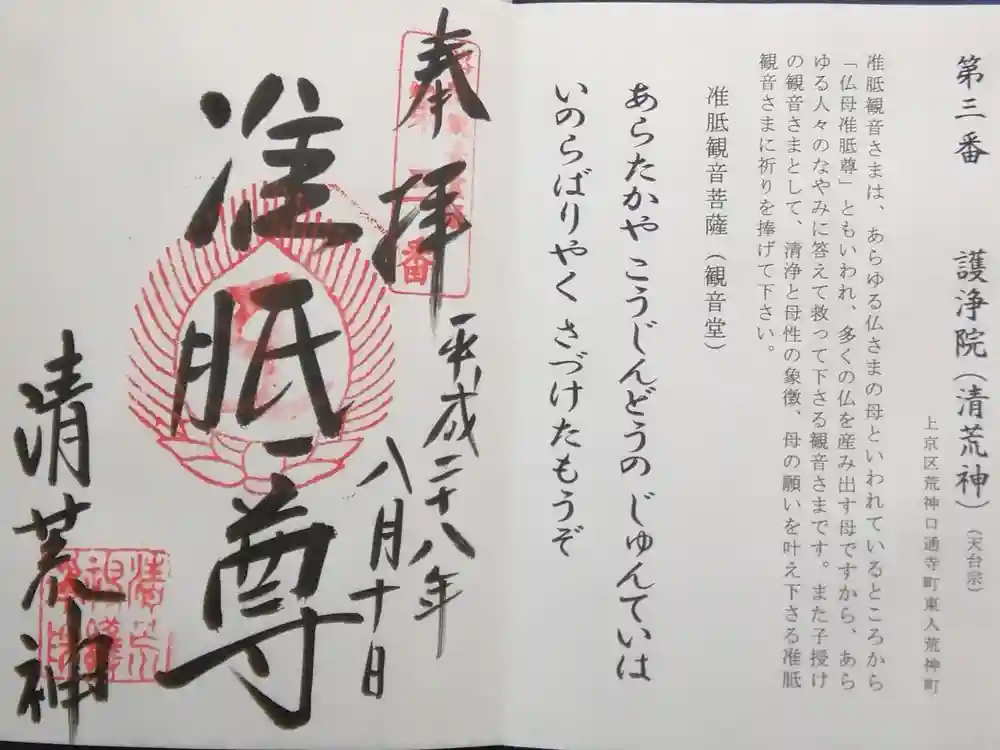 第三番　護浄院（清荒神）（天台宗）
上京区荒神口通寺町東入荒神町
准胝観音さまは、あらゆる仏さまの母といわれているところから
「仏母准胝尊」ともいわれ、多くの仏を産み出す母ですから、あら
ゆる人々のなやみに答えて救って下さる観音さまです。また子授け
の観音さまとして、清浄と母性の象徴、母の願いを叶え下さる准胝
観音さまに祈りを捧げて下さい。
准胝観音菩薩（観音堂）
あらたかや こうじんどうの じゅんていは
いのらばりやく さづけたもうぞ
奉拝
平成二十八年
八月十日
准胝尊
清荒神